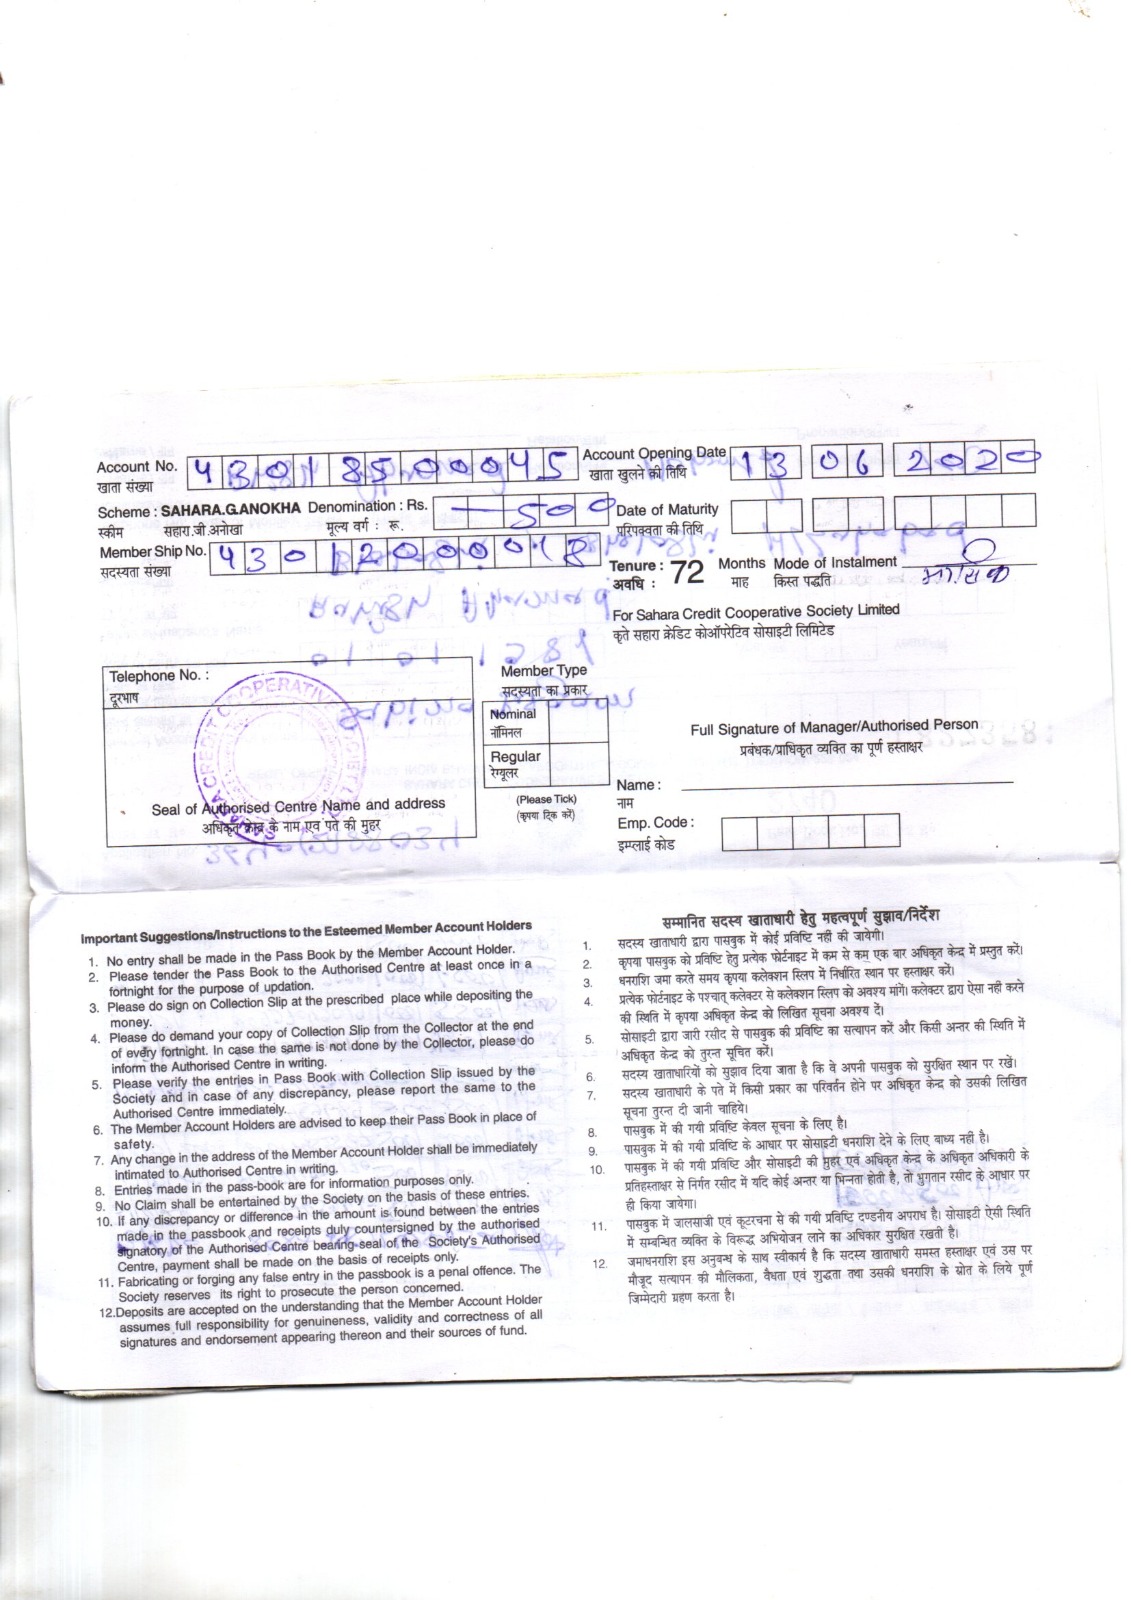 Account No. 43018500045 Account Opening Date 13 06 2020
खाता संख्या खाता खुलने की तिथि
Scheme : SAHARA.G.ANOKHA Denomination : Rs. 500 Date of Maturity
स्कीम सहारा.जी.अनोखा मूल्य वर्ग : रू. परिपक्वता की तिथि
Member Ship No. 430120000
सदस्यता संख्या
Tenure : 72 Months Mode of Instalment मासिक
अवधि : माह किस्त पद्वति
For Sahara Credit Cooperative Society Limited
कृते सहारा क्रेडिट कोऑपरेटिव सोसाइटी लिमिटेड
Telephone No. :
दूरभाष
CREDIT COOPERATIVE
Seal of Authorised Centre Name and address
अधिकृत केन्द्र के नाम एवं पते की मुहर
Member Type
सदस्यता का प्रकार
Nominal
नॉमिनल
Regular
रेग्यूलर
(Please Tick)
(कृपया टिक करें)
Full Signature of Manager/Authorised Person
प्रबंधक/प्राधिकृत व्यक्ति का पूर्ण हस्ताक्षर
Name :
नाम
Emp. Code :
इम्प्लाई कोड
Important Suggestions/Instructions to the Esteemed Member Account Holders
1. No entry shall be made in the Pass Book by the Member Account Holder.
2. Please tender the Pass Book to the Authorised Centre at least once in a
fortnight for the purpose of updation.
3. Please do sign on Collection Slip at the prescribed place while depositing the
money.
4. Please do demand your copy of Collection Slip from the Collector at the end
of every fortnight. In case the same is not done by the Collector, please do
inform the Authorised Centre in writing.
5. Please verify the entries in Pass Book with Collection Slip issued by the
Society and in case of any discrepancy, please report the same to the
Authorised Centre immediately.
6. The Member Account Holders are advised to keep their Pass Book in place of
safety.
7. Any change in the address of the Member Account Holder shall be immediately
intimated to Authorised Centre in writing.
8. Entries made in the pass-book are for information purposes only.
9. No Claim shall be entertained by the Society on the basis of these entries.
10. If any discrepancy or difference in the amount is found between the entries
made in the passbook and receipts duly countersigned by the authorised
signatory of the Authorised Centre bearing seal of the Society's Authorised
Centre, payment shall be made on the basis of receipts only.
11. Fabricating or forging any false entry in the passbook is a penal offence. The
Society reserves its right to prosecute the person concerned.
12.Deposits are accepted on the understanding that the Member Account Holder
assumes full responsibility for genuineness, validity and correctness of all
signatures and endorsement appearing thereon and their sources of fund.
सम्मानित सदस्य खाताधारी हेतु महत्वपूर्ण सुझाव/निर्देश
1. सदस्य खाताधारी द्वारा पासबुक में कोई प्रविष्टि नही की जायेगी।
2. कृपया पासबुक को प्रविष्टि हेतु प्रत्येक फोर्टनाइट में कम से कम् एक बार अधिकृत केन्द्र में प्रस्तुत करें।
3. धनराशि जमा करते समय कृपया कलेक्शन स्लिप में निर्धारित स्थान पर हस्ताक्षर करें।
4. प्रत्येक फोर्टनाइट के पश्चात् कलेक्टर से कलेक्शन स्लिप को अवश्य मांगें। कलेक्टर द्वारा ऐसा नही करने
की स्थिति में कृपया अधिकृत केन्द्र को लिखित सूचना अवश्य दें।
5. सोसाइटी द्वारा जारी रसीद से पासबुक की प्रविष्टि का सत्यापन करें और किसी अन्तर की स्थिति में
अधिकृत केन्द्र को तुरन्त सूचित करें।
6. सदस्य खाताधारियों को सुझाव दिया जाता है कि वे अपनी पासबुक को सुरक्षित स्थान पर रखें।
7. सदस्य खाताधारी के पते में किसी प्रकार का परिवर्तन होने पर अधिकृत केन्द्र को उसकी लिखित
सूचना तुरन्त दी जानी चाहिये।
8. पासबुक में की गयी प्रविष्टि केवल सूचना के लिए है।
9. पासबुक में की गयी प्रविष्टि के आधार पर सोसाइटी धनराशि देने के लिए बाध्य नही है।
10. पासबुक में की गयी प्रविष्टि और सोसाइटी की मुहर एवं अधिकृत केन्द्र के अधिकृत अधिकारी के
प्रतिहस्ताक्षर से निर्गत रसीद में यदि कोई अन्तर या भिन्नता होती है, तो भुगतान रसीद के आधार पर
ही किया जायेगा।
11. पासबुक में जालसाजी एवं कूटरचना से की गयी प्रविष्टि दण्डनीय अपराध है। सोसाइटी ऐसी स्थिति
में सम्बन्धित व्यक्ति के विरूद्ध अभियोजन लाने का अधिकार सुरक्षित रखती है।
12. जमाधनराशि इस अनुबन्ध के साथ स्वीकार्य है कि सदस्य खाताधारी समस्त हस्ताक्षर एवं उस पर
मौजूद सत्यापन की मौलिकता, वैधता एवं शुद्धता तथा उसकी धनराशि के स्रोत के लिये पूर्ण
जिम्मेदारी ग्रहण करता है।